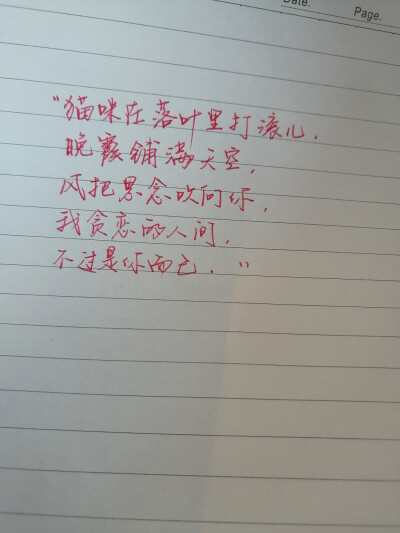 Date.
Page.
“猫咪在落叶里打滚儿，
晚霞铺满天空，
风把思念吹向你，
我贪恋的人间，
不过是你而已．”